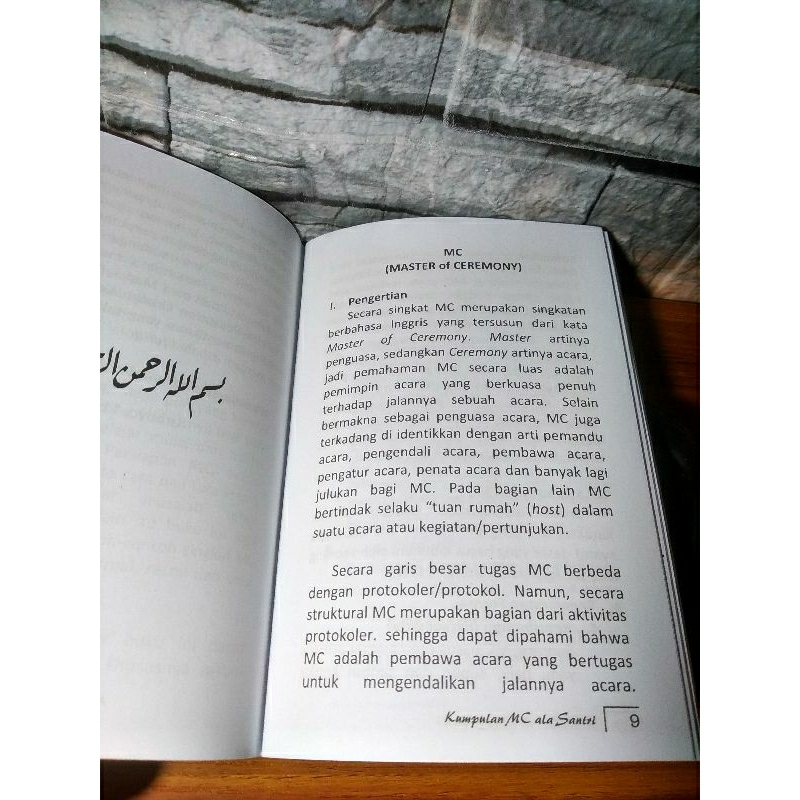 بسم الله الرحمن
MC
(MASTER of CEREMONY)
I. Pengertian
Secara singkat MC merupakan singkatan
berbahasa Inggris yang tersusun dari kata
Master of Ceremony. Master artinya
penguasa, sedangkan Ceremony artinya acara,
jadi pemahaman MC secara luas adalah
pemimpin acara yang berkuasa penuh
terhadap jalannya sebuah acara. Selain
bermakna sebagai penguasa acara, MC juga
terkadang di identikkan dengan arti pemandu
acara, pengendali acara, pembawa acara,
pengatur acara, penata acara dan banyak lagi
julukan bagi MC. Pada bagian lain MC
bertindak selaku “tuan rumah” (host) dalam
suatu acara atau kegiatan/pertunjukan.
Secara garis besar tugas MC berbeda
dengan protokoler/protokol. Namun, secara
struktural MC merupakan bagian dari aktivitas
protokoler. sehingga dapat dipahami bahwa
MC adalah pembawa acara yang bertugas
untuk mengendalikan jalannya acara.
Kumpulan MC ala Santri 9